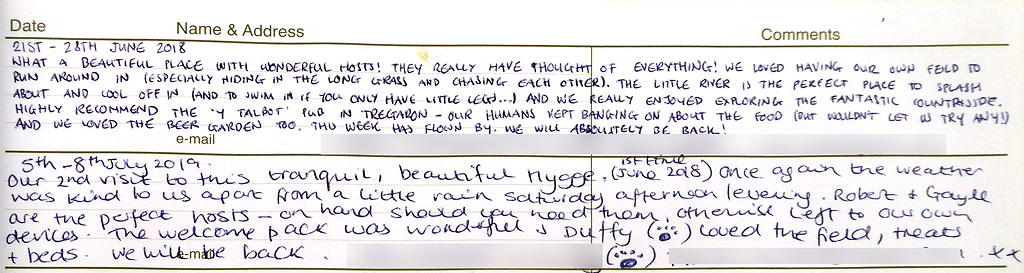 Date Name & Address Comments
21ST - 28TH JUNE 2018
WHAT A BEAUTIFUL PLACE WITH WONDERFUL HOSTS! THEY REALLY HAVE THOUGHT OF EVERYTHING! WE LOVED HAVING OUR OWN FEILD TO
RUN AROUND IN (ESPECIALLY HIDING IN THE LONG GRASS AND CHASING EACH OTHER). THE LITTLE RIVER IS THE PERFECT PLACE TO SPLASH
ABOUT AND COOL OFF IN (AND TO SWIM IN IF YOU ONLY HAVE LITTLE LEGS...) AND WE REALLY ENJOYED EXPLORING THE FANTASTIC COUNTRYSIDE.
HIGHLY RECOMMEND THE 'Y TALBOT' PUB IN TREGARON - OUR HUMANS KEPT BANGING ON ABOUT THE FOOD (BUT WOULDN'T LET US TRY ANY!)
AND WE LOVED THE BEER GARDEN TOO. THIS WEEK HAS FLOWN BY. WE WILL ABSOLUTELY BE BACK!
e-mail
5th - 8th July 2019. 1st time
Our 2nd visit to this tranquil, beautiful Hygge. (June 2018) Once again the weather
was kind to us apart from a little rain saturday afternoon/evening. Robert & Gayle
are the perfect hosts - on hand should you need them, otherwise left to our own
devices. The welcome pack was wonderful & Duffy loved the field, treats
+ beds. We will be back. xx
e-mail